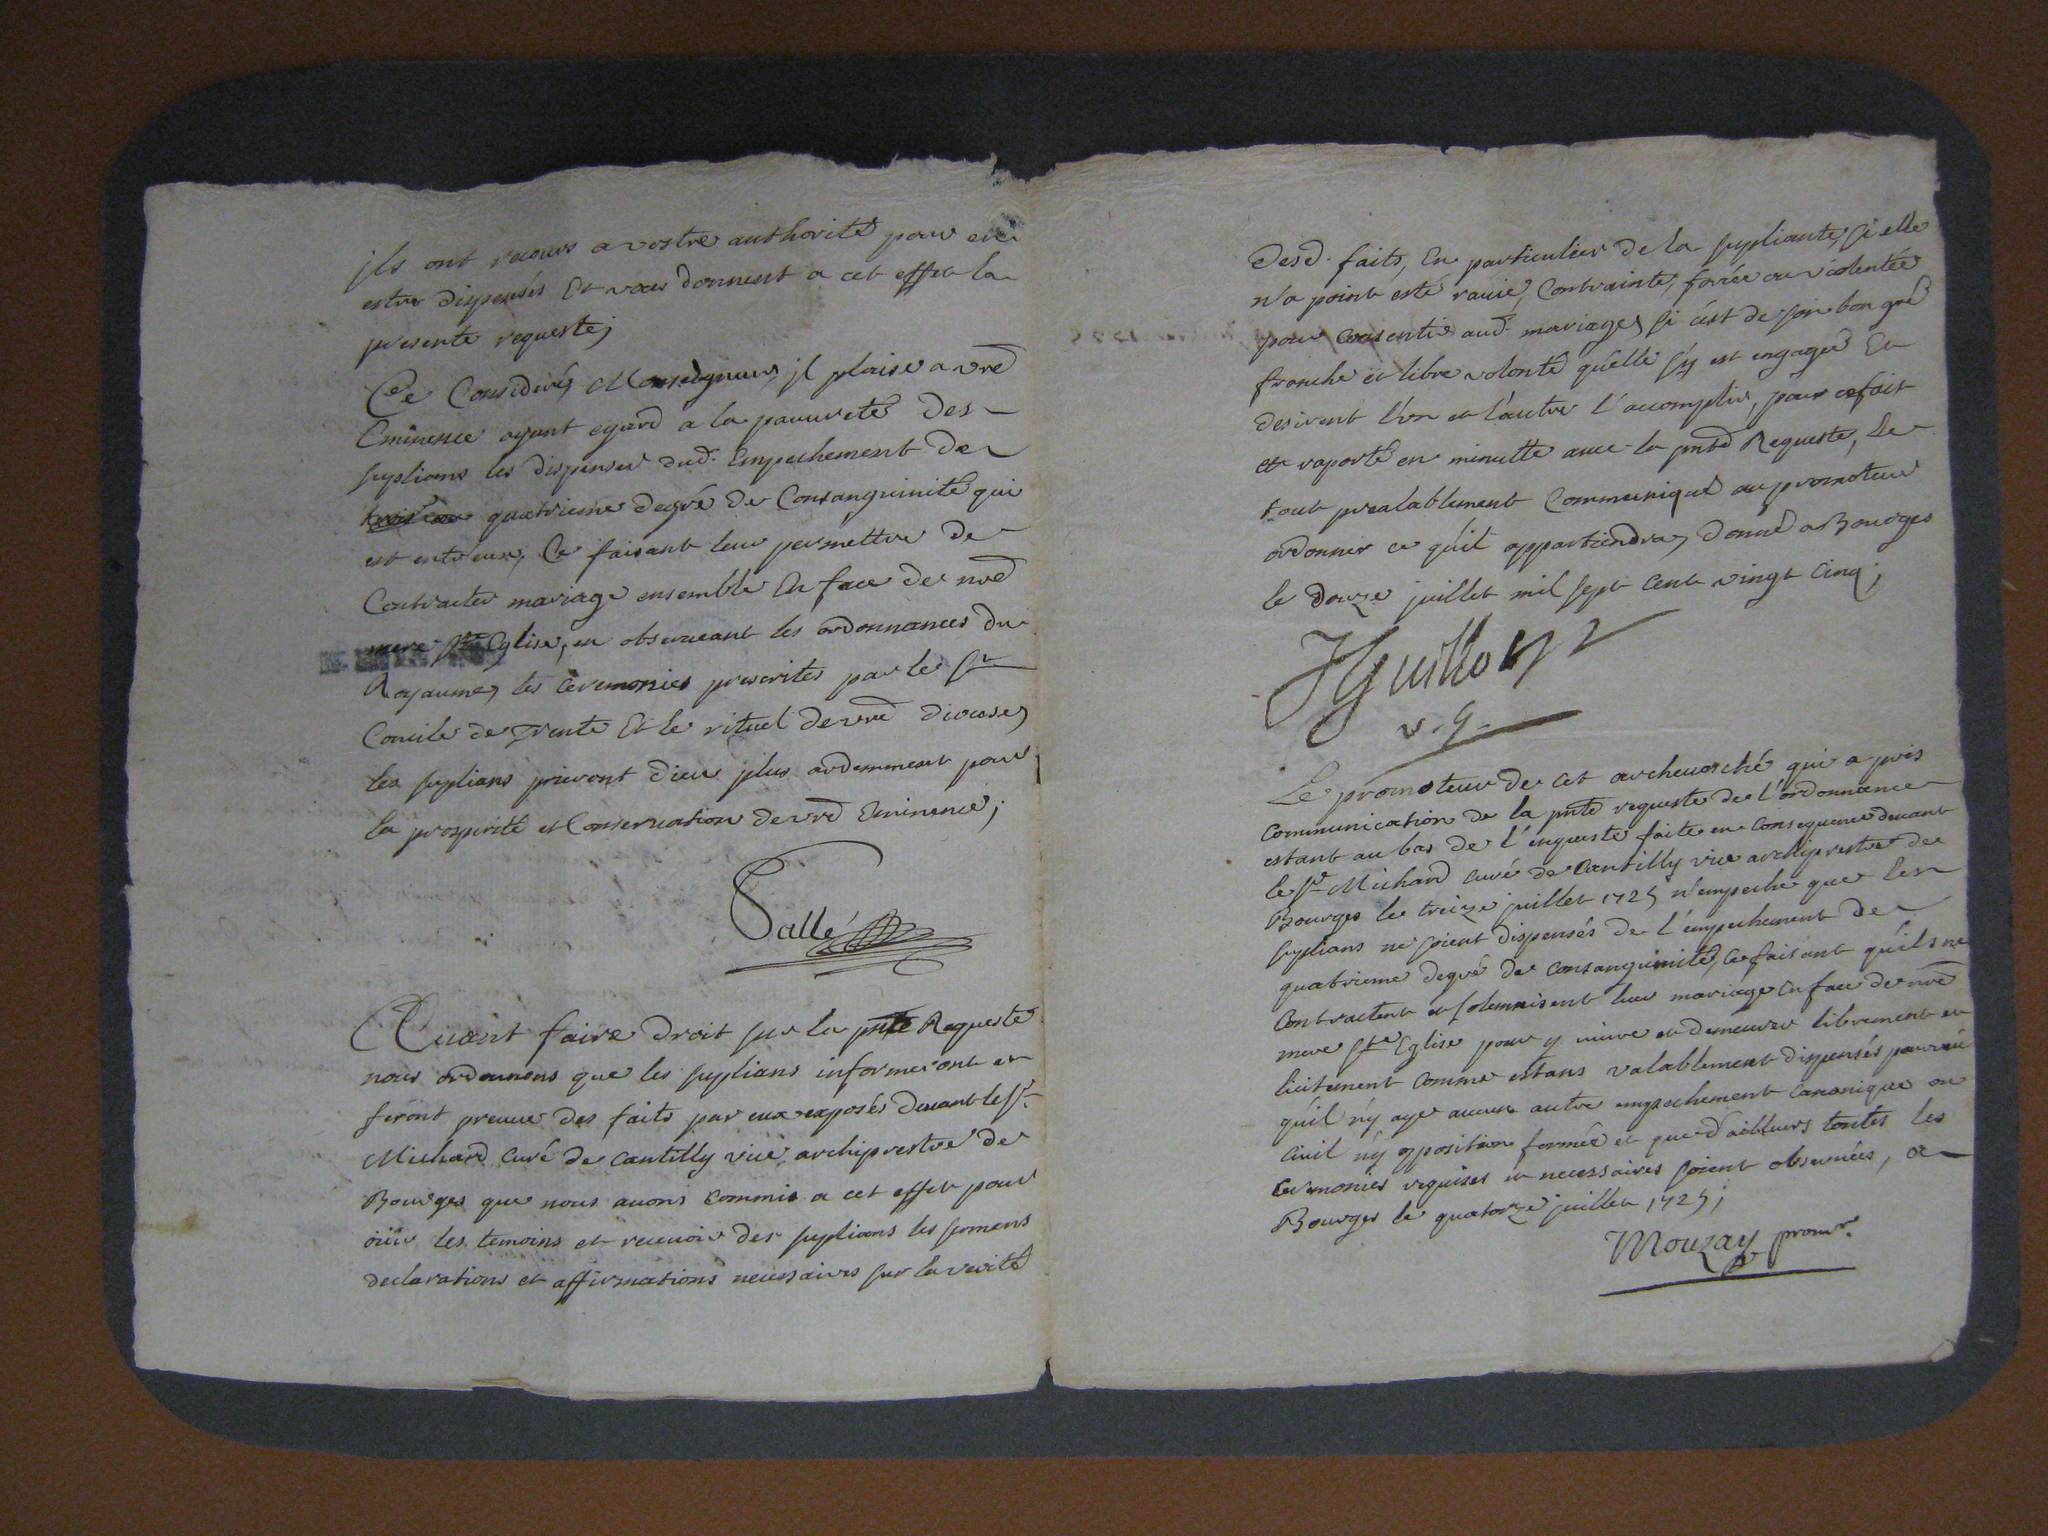 jls ont recours a vostre authorité pour en
estre dispensés Et vous donnent a cet effet la
presente requeste;
Ce Consideré, Monseigneur, jl plaise a vre
Eminence ayant egard a la pauureté des
suplians les dispenser dud. Empechement de
quatrieme degré de Consanguinité qui
est entr'eux, Ce faisant leur permettre de
Contracter mariage ensemble En face de nre
mere ste Eglise, en obseruant les ordonnances du
Royaume, les ceremonies prescrites par le st
Concile de Trente Et le rituel de vre diocese,
les suplians prieront dieu plus ardemment pour
la prosperité et Conseruation de vre Eminence;
Sallé
Auant faire droit sur la pnte Requeste
nous ordonnons que les suplians informeront et
feront preuue des faits par eux exposés deuant le sr
Michard curé de Cantilly vice archiprestre de
Bourges que nous auons commis a cet effet pour
oüir les temoins et receuoir des suplians les sermens
declarations et affirmations necessaires sur la verité
desd. faits, En particulier de la supliante, si elle
n'a point esté rauie, Contrainte, forcée ou violentée
pour consentir aud. mariage, si c'est de son bon gré
franche et libre volonté qu'elle s'y est engagée Et
desirent l'vn et l'autre l'accomplir, pour ce fait
et raporté en minutte auec la pnte Requeste, Le
tout prealablement Communiqué au promoteur
ordonner ce qu'il appartiendra, Donné a Bourges
le douze juillet mil sept cent vingt cinq;
JGuillo
v. g.
Le promoteur de cet archeuesché qui a pris
communication de la pnte requeste de l'ordonnance
estant au bas de l'enqueste faite en consequence deuant
le sr Michard curé de Cantilly vice archiprestre de
Bourges le treize juillet 1725 n'empeche que les
suplians ne soient dispensés de l'empechement de
quatrieme degré de consanguinité, ce faisant qu'ils ne
Contractent et solemnisent leur mariage en face de nre
mere ste Eglise pour y viure et demeurer librement et
licitement comme estans valablement dispensés pourvu
qu'il n'y aye aucun autre empechement canonique ou
ciuil n'y opposition formée et que d'ailleurs toutes les
ceremonies requises et necessaires soient obseruées, a
Bourges le quatorze juillet 1725;
Mouzay promr.